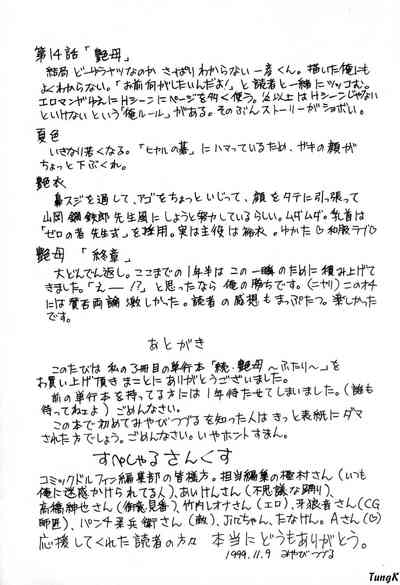 第14話「艶母」
結局どーゆうヤツなのか さっぱりわからない一彦くん。描いた俺にも
よくわからない。「お前何がしたいんだよ!」と読者と一緒にツッコむ。
エロマンガゆえにHシーンにページを多く使う。½以上はHシーンじゃない
といけないという「俺ルール」がある。そのぶんストーリーがショボい。
夏色
いきなり若くなる。「ヒカルの碁」にハマっているため、ガキの顔が
ちょっと下ぶくれ。
艶衣
鼻スジを通して、アゴをちょっといじって、顔をタテに引っ張って
山岡鋼鉄郎先生風にしようと努力しているらしい。ムダムダ。乳首は
「ゼロの者先生式」を採用。実は主役は絲衣。ゆかた♡和服ラブ♡
艶母 「終章」
大どんでん返し。ここまでの1年半は この一瞬のために積み上げて
きました。「えー!?」と思ったなら 俺の勝ちです。(ニヤリ)このオチ
には賛否両論激しかった。読者の感想もまっぷたつ。楽しかった
です。
あとがき
このたびは 私の3冊目の単行本「続・艶母 〜ふたり〜」を
お買い上げ頂き まことにありがとうございました。
前の単行本を持ってる方には 1年待たせてしまいました。(誰も
待ってねェよ) ごめんなさい。
この本で初めてみやびつづるを知った人は きっと表紙にダマ
された方でしょう。ごめんなさい。いやホントすまん。
すぺしゃるさんくす
コミックドルフィン編集部の皆様方。担当編集の種村さん(いつも
俺に迷惑かけられてる人)、あいけんさん(不思議な踊り)、
高橋紳也さん(御意見番)、竹内レオナさん(エロ)、牙狼吾さん(CG
師匠)、パンチ兵衛さん(敵)、Jirちゃん、たなけん。Aさん(♡)
応援してくれた読者の方々 本当にどうもありがとう。
1999.11.9 みやびつづる
TungK